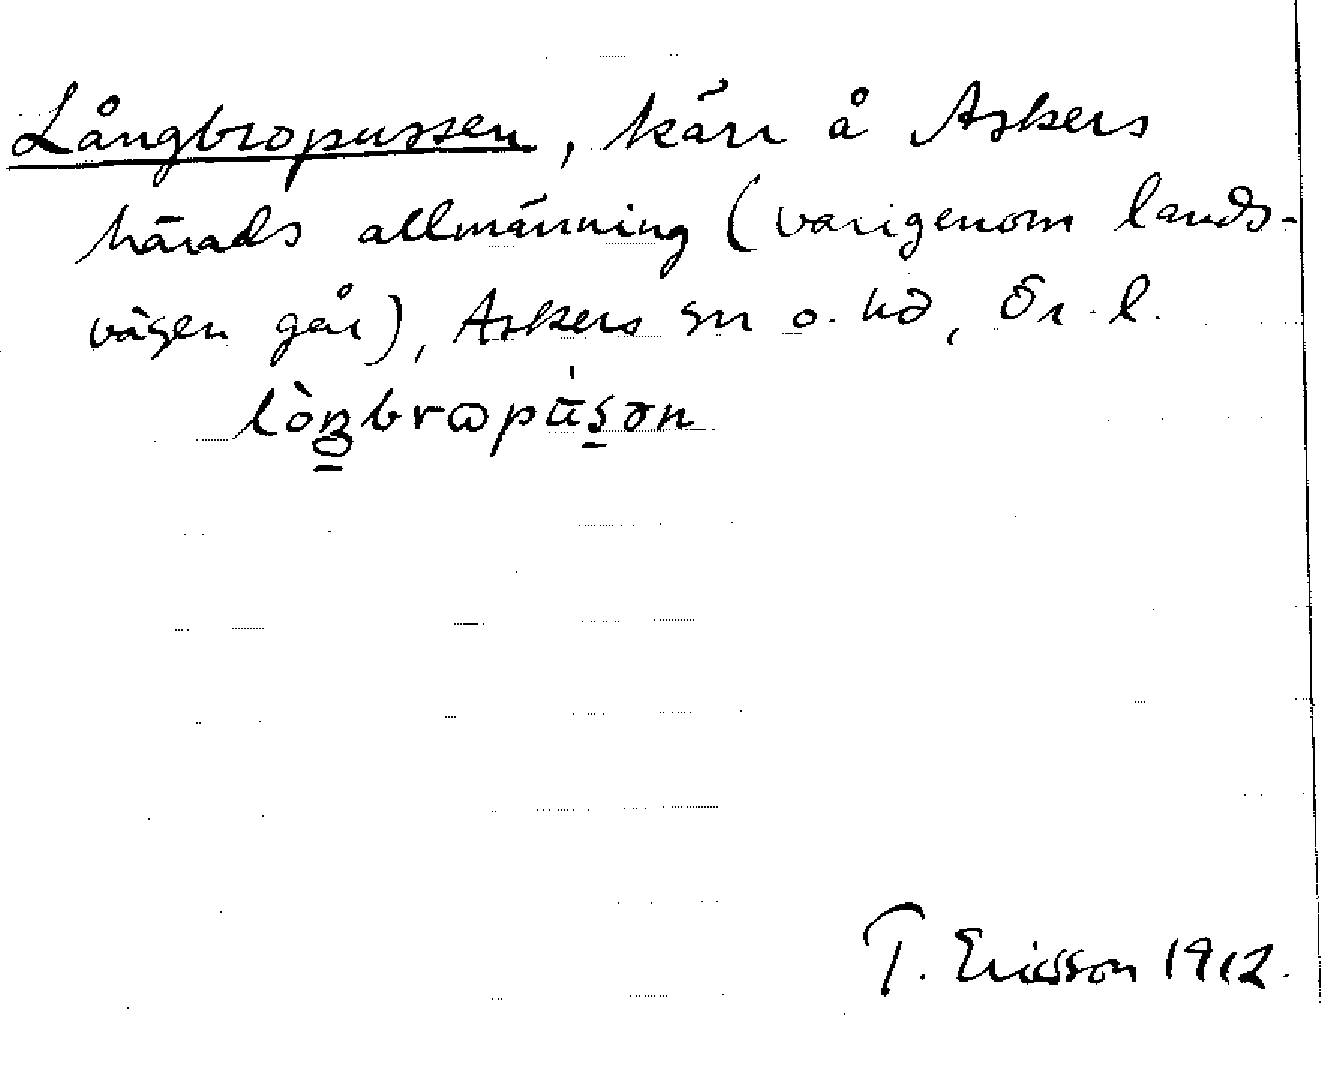 Långbropussen, kärr å Askers
härads allmänning (varigenom lands-
vägen går), Askers sn o. hd, Ör. l.
lòŋbrɷpu̇sən
T. Ericsson 1912.